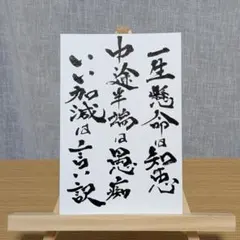 一生懸命は知恵
中途半端は愚痴
いい加減は言い訳